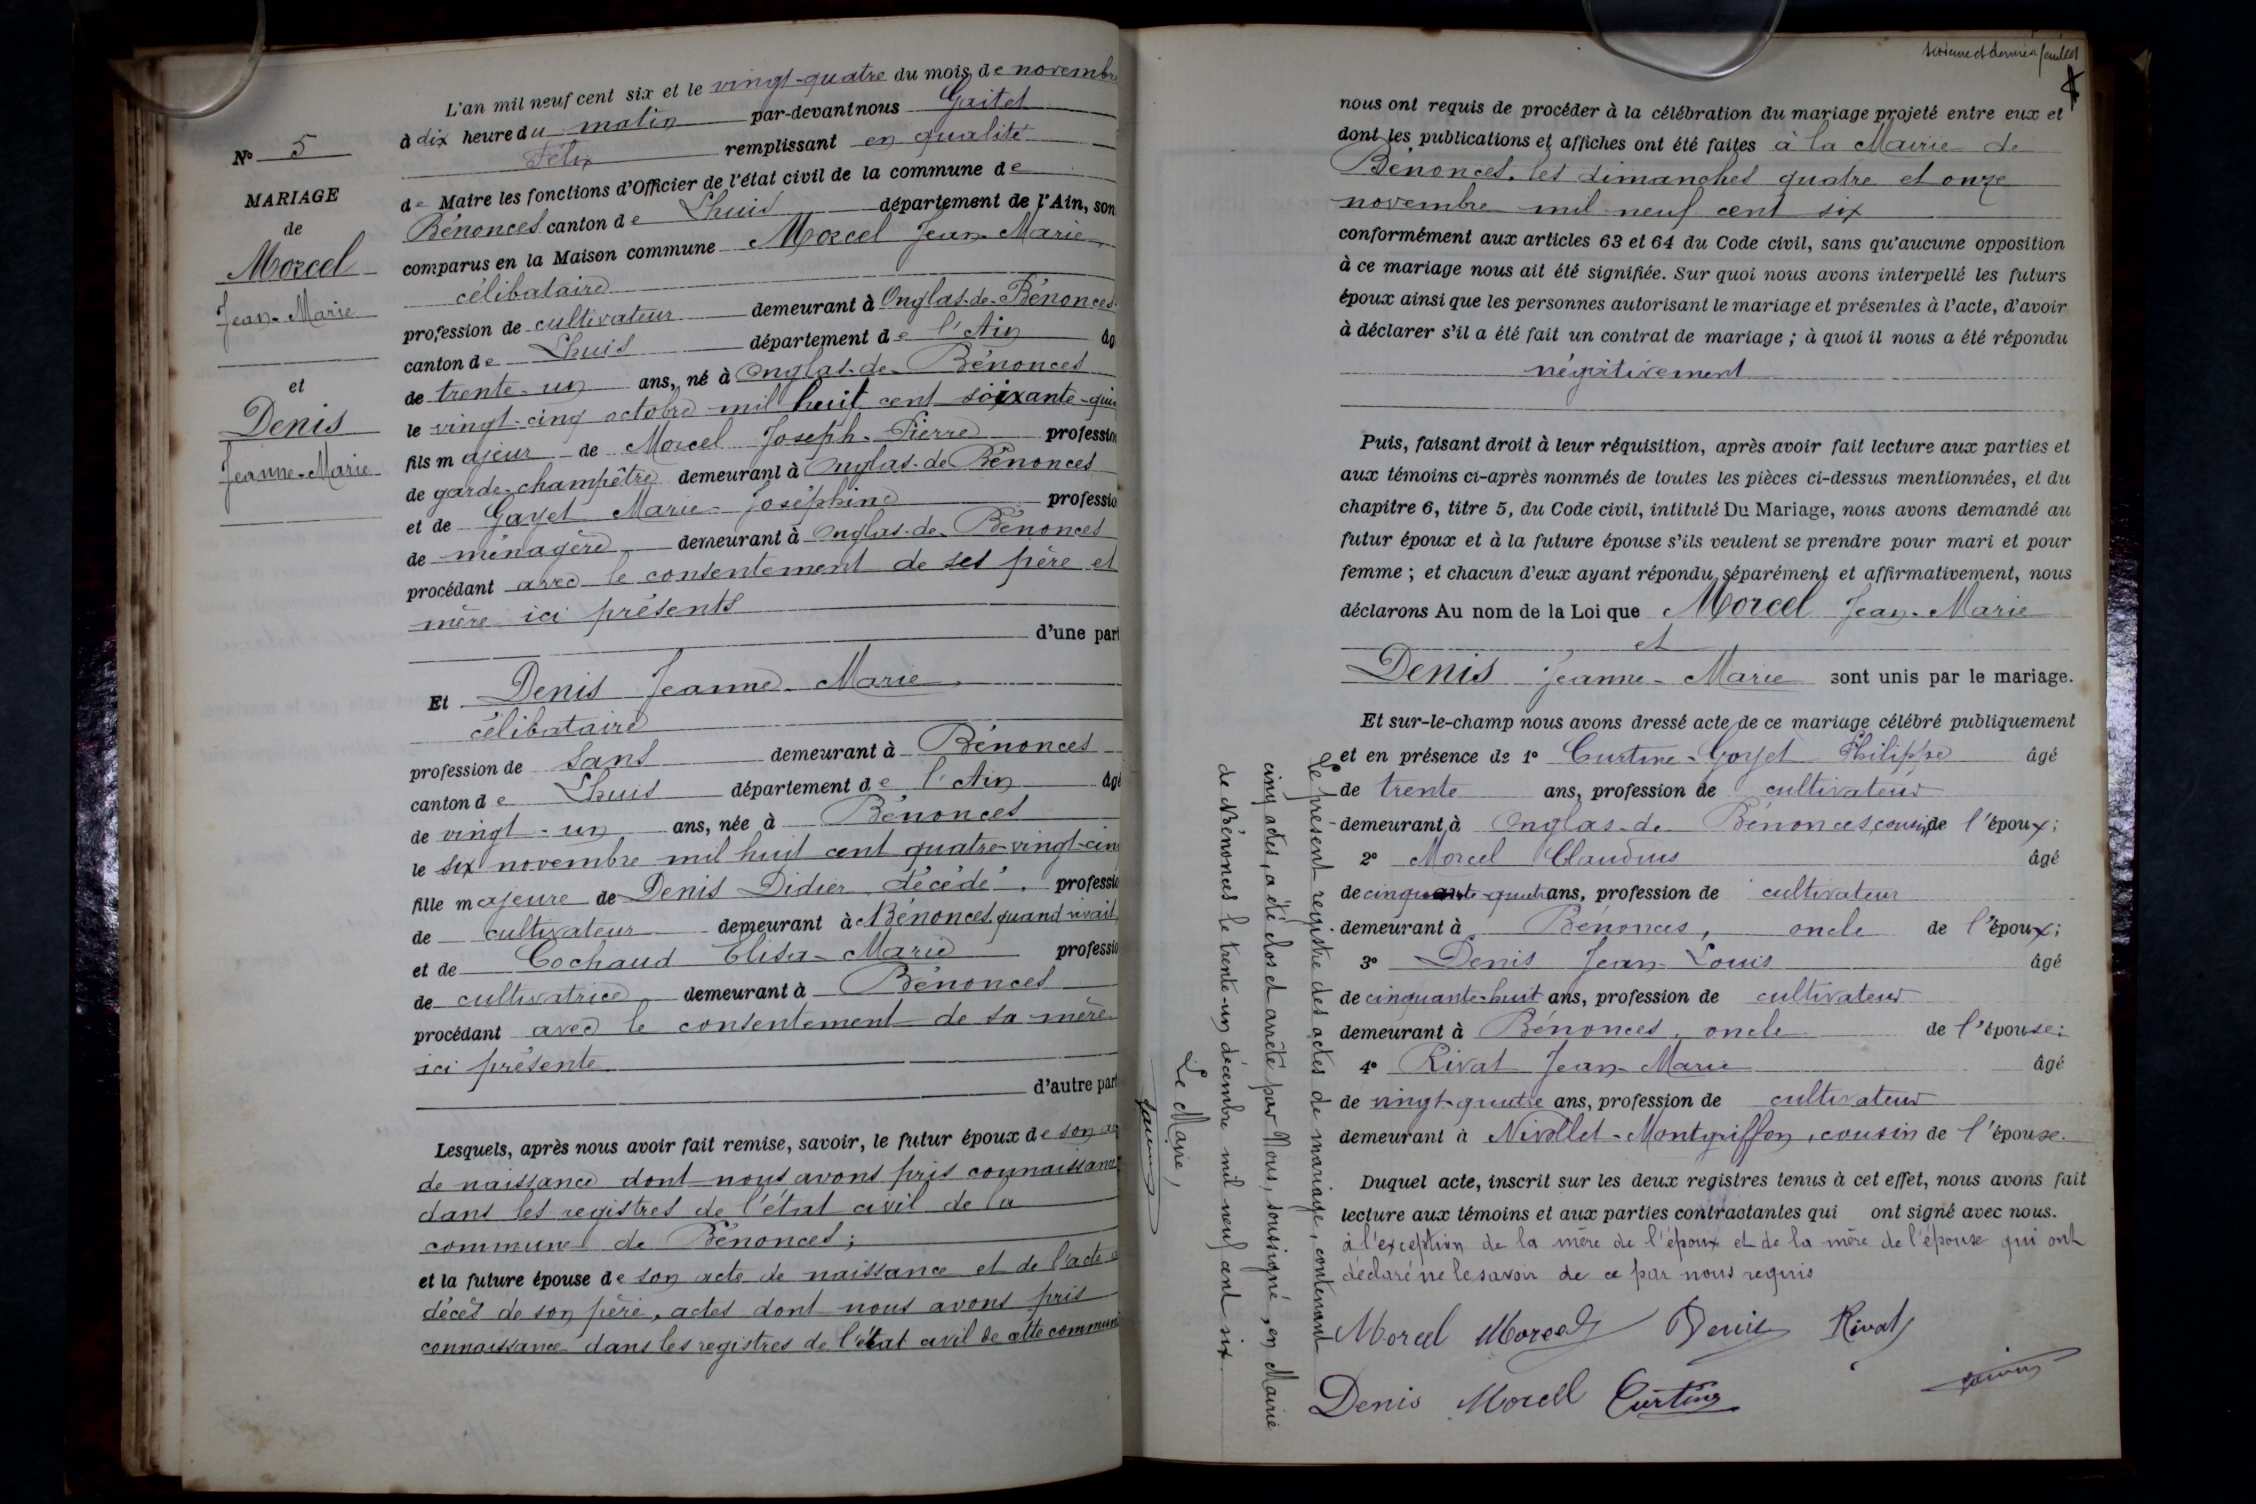 L'an mil neuf cent six et le vingt-quatre du mois de novembre
à dix heure du matin par-devant nous Gaitet
Félix remplissant en qualité
de Maire les fonctions d'Officier de l'état civil de la commune de
Bénonces canton de Lhuis département de l'Ain, son
comparus en la Maison commune Morcel Jean-Marie,
célibataire
profession de cultivateur demeurant à Onglas-de-Bénonces
canton de Lhuis département de l'Ain âg
de trente-un ans, né à Onglas-de-Bénonces
le vingt-cinq octobre mil huit cent soixante-quin
fils majeur de Morcel Joseph-Pierre profession
de garde-champêtre demeurant à Onglas-de-Bénonces
et de Gayet Marie-Joséphine professio
de ménagère demeurant à Onglas-de-Bénonces
procédant avec le consentement de ses père et
mère ici présents
d'une part
Et Denis Jeanne-Marie
célibataire
profession de sans demeurant à Bénonces
canton de Lhuis département de l'Ain âgé
de vingt-un ans, née à Bénonces
le six novembre mil huit cent quatre-vingt-cinq
fille majeure de Denis Didier, décédé. professio
de cultivateur demeurant à Bénonces, quand vivait,
et de Cochaud Elisa-Marie professio
de cultivatrice demeurant à Bénonces
procédant avec le consentement de sa mère
ici présente
d'autre part
Lesquels, après nous avoir fait remise, savoir, le futur époux de son ac
de naissance dont nous avons pris connaissance
dans les registres de l'état civil de la
commune de Bénonces;
et la future épouse de son acte de naissance et de l'acte d
décès de son père, actes dont nous avons pris
connaissance dans les registres de l'état civil de cette commune
N° 5
MARIAGE
de
Morcel
Jean-Marie
et
Denis
Jeanne-Marie
sixième et dernier feuillet
nous ont requis de procéder à la célébration du mariage projeté entre eux et
dont les publications et affiches ont été faites à la Mairie de
Bénonces, les dimanches quatre et onze
novembre mil neuf cent six
conformément aux articles 63 et 64 du Code civil, sans qu'aucune opposition
à ce mariage nous ait été signifiée. Sur quoi nous avons interpellé les futurs
époux ainsi que les personnes autorisant le mariage et présentes à l'acte, d'avoir
à déclarer s'il a été fait un contrat de mariage ; à quoi il nous a été répondu
négativement
Puis, faisant droit à leur réquisition, après avoir fait lecture aux parties et
aux témoins ci-après nommés de toutes les pièces ci-dessus mentionnées, et du
chapitre 6, titre 5, du Code civil, intitulé Du Mariage, nous avons demandé au
futur époux et à la future épouse s'ils veulent se prendre pour mari et pour
femme ; et chacun d'eux ayant répondu séparément et affirmativement, nous
déclarons Au nom de la Loi que Morcel Jean-Marie
et
Denis Jeanne-Marie sont unis par le mariage.
Et sur-le-champ nous avons dressé acte de ce mariage célébré publiquement
et en présence de 1° Curtine-Goyet Philippe âgé
de trente ans, profession de cultivateur
demeurant à Onglas-de-Bénonces, cousin de l'époux;
2° Morcel Claudius âgé
de cinquante-quatre ans, profession de cultivateur
demeurant à Bénonces, oncle de l'époux;
3° Denis Jean-Louis âgé
de cinquante-huit ans, profession de cultivateur
demeurant à Bénonces, oncle de l'épouse;
4° Rivat Jean-Marie âgé
de vingt-quatre ans, profession de cultivateur
demeurant à Nivollet-Montgriffon, cousin de l'épouse.
Duquel acte, inscrit sur les deux registres tenus à cet effet, nous avons fait
lecture aux témoins et aux parties contractantes qui ont signé avec nous.
à l'exception de la mère de l'époux et de la mère de l'épouse qui ont
déclaré ne le savoir de ce par nous requis
Morcel Morcel Denis Rivat
Denis Morcel Curtine
Le présent registre des actes de mariage, contenant
cinq actes, a été clos et arrêté par Nous, soussigné, en Mairie
de Bénonces le trente-un décembre mil neuf cent six
Le Maire,